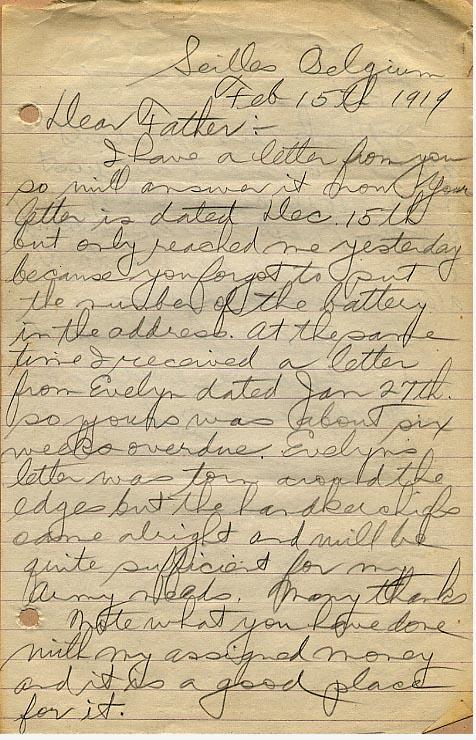 Seilles Belgium
Feb 15th 1919
Dear Father:-
I have a letter from you
so will answer it now. Your
letter is dated Dec. 15th
but only reached me yesterday
because you forgot to put
the number of the battery
in the address. At the same
time I received a letter
from Evelyn dated Jan 27th.
so yours was about six
weeks overdue. Evelyn's
letter was torn around the
edges but the handkerchiefs
came alright and will be
quite sufficient for my
Army needs. Many thanks
Note what you have done
with my assigned money
and it is a good place
for it.